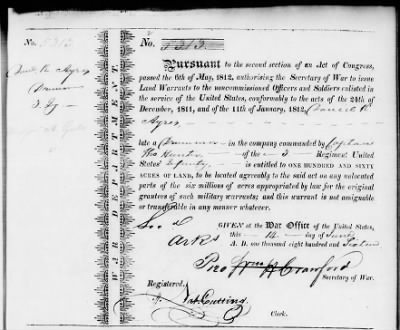 No. 5313
Daniel R. Ayres
Drummer
3. Inf
WAR DEPARTMENT.
No. 5313.
Pursuant to the second section of an Act of Congress,
passed the 6th of May, 1812, authorising the Secretary of War to issue
Land Warrants to the noncommissioned Officers and Soldiers enlisted in
the service of the United States, conformably to the acts of the 24th of
December, 1811, and of the 11th of January, 1812, Daniel R.
Ayres
late a Drummer in the company commanded by Captain
Hunter of the 3 Regiment United
States' Infantry, is entitled to ONE HUNDRED AND SIXTY
ACRES OF LAND, to be located agreeably to the said act on any unlocated
parts of the six millions of acres appropriated by law for the original
grantees of such military warrants; and this warrant is not assignable
or transferable in any manner whatever.
GIVEN at the War Office of the United States,
this 14 day of
Arks
A. D. one thousand eight hundred and
Wm H Crawford
Secretary of War.
Registered,
Cutting
Clerk.